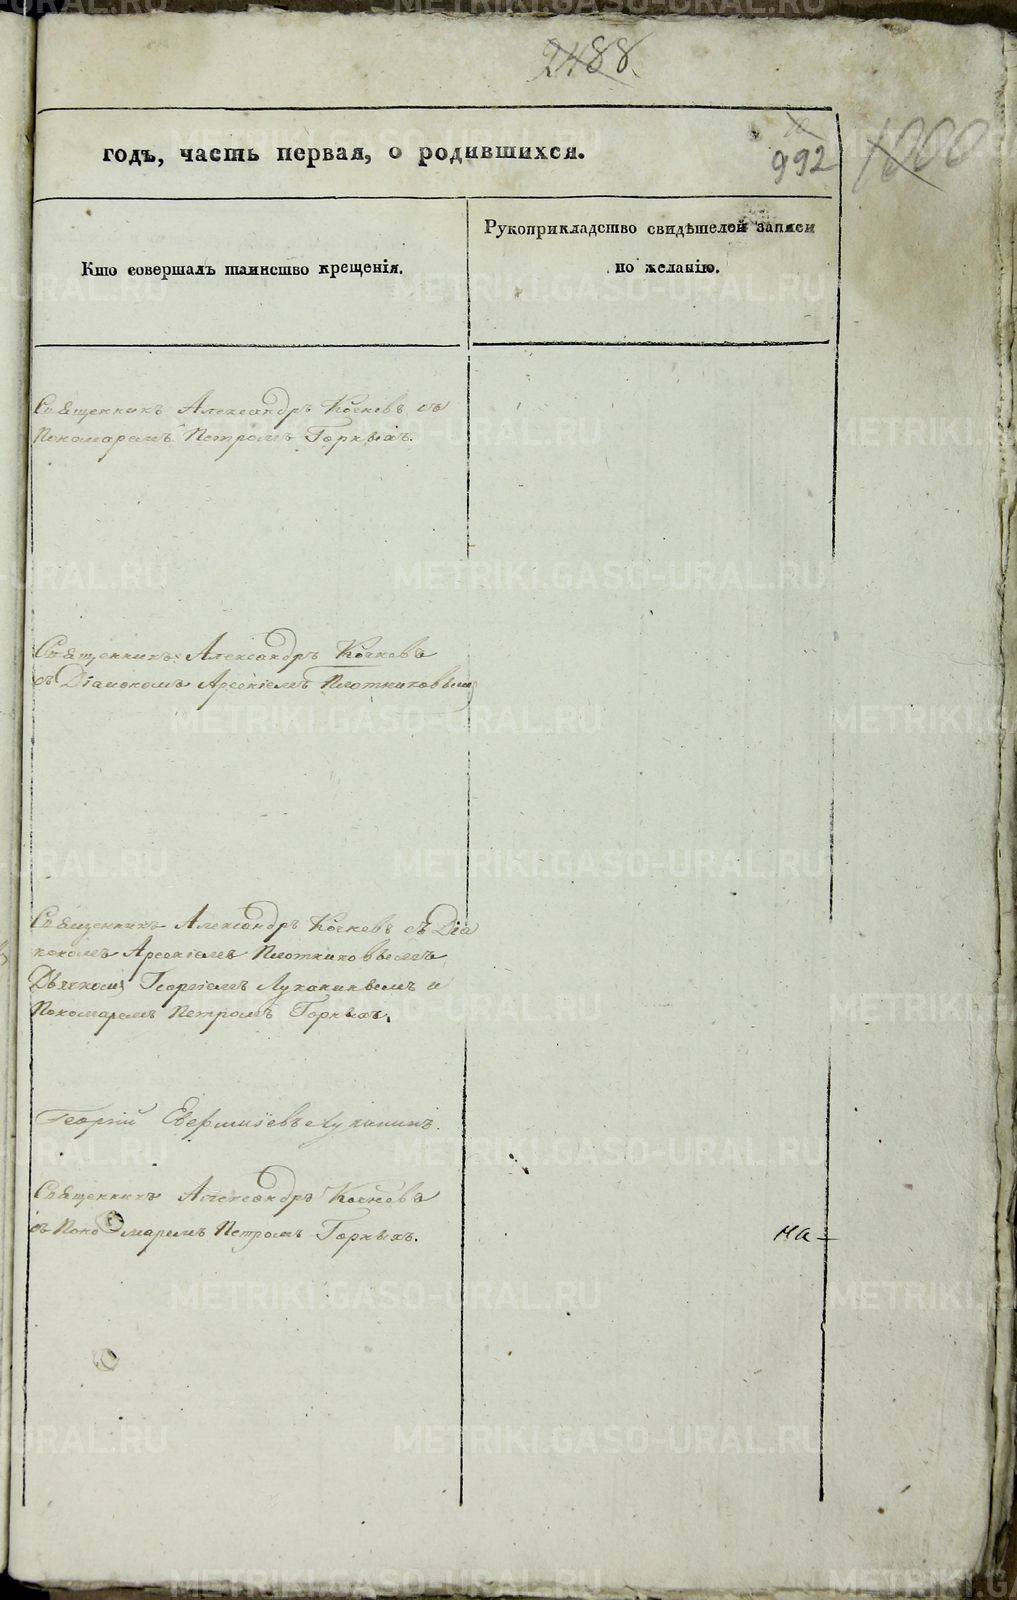 2488.
годъ, часть первая, о родившихся.
992
1000
Кто совершалъ таинство крещенія.
Рукоприкладство свидѣтелей записи
по желанію.
Священникъ Александръ Кочневъ съ
Пономаремъ Петромъ Горныхъ.
Священникъ Александръ Кочневъ
съ Діакономъ Арсеніемъ Плотниковымъ
Священникъ Александръ Кочневъ съ Діа
кономъ Арсеніемъ Плотниковымъ
Дьячкомъ Георгіемъ Луканинымъ и
Пономаремъ Петромъ Горныхъ.
Георгій Луканинъ.
Священникъ Александръ Кочневъ
съ Пономаремъ Петромъ Горныхъ.
на
METRIKI.GASO-URAL.RU